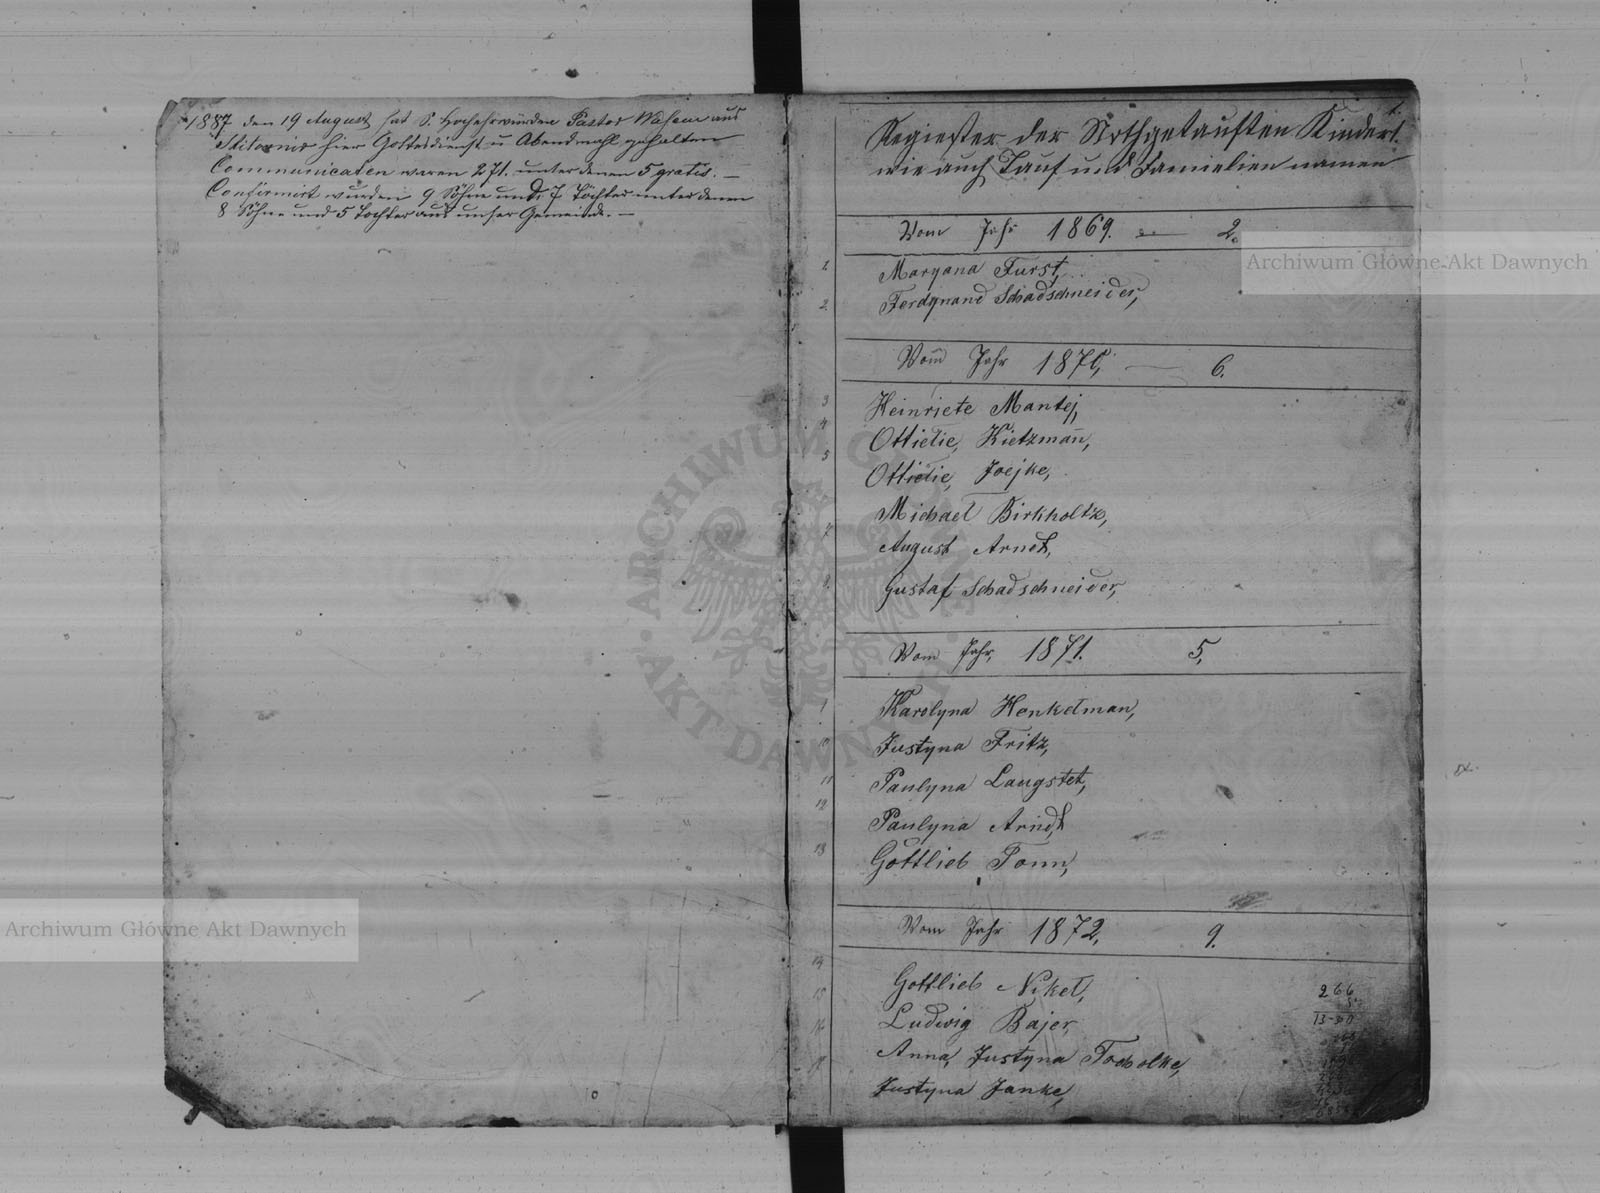 1887 den 19 August hat S. Hochehrwürden Pastor aus
hier Gottesdienst u Abendmahl gehalten
Communicaten waren 271. unter denen 5 gratis. —
Confirmirt wurden 9 Söhne und 7 Töchter unter denen
8 Söhne und 5 Tochter aus unser Gemeinde. —
1.
Regiester der Nothgetauften Kinder
wie auch Tauf und Familien namen
Vom Jahr 1869. — 2.
1 Maryana Furst,
2. Ferdynand Schadschneider,
Vom Jahr 1870, — 6.
3 Heinriete Mantej,
4 Ottielie, Kietzman̄,
5 Ottielie, Joejke,
Michael Birkholtz,
7 August Arndt,
8. Gustaf Schadschneider,
Vom Jahr, 1871. 5,
Karolyna Henkelman,
10 Justyna Fritz,
11 Paulyna Laugstet,
12 Paulyna Arndt
13 Gottlieb Tonn,
Vom Jahr 1872, 9.
14 Gottlieb Nikel,
15 Ludwig Bajer,
Anna, Justyna Tocholke,
Justyna Janke,
266
Archiwum Główne Akt Dawnych
Archiwum Główne Akt Dawnych
ARCHIWUM GŁÓWNE · AKT DAWNYCH ·